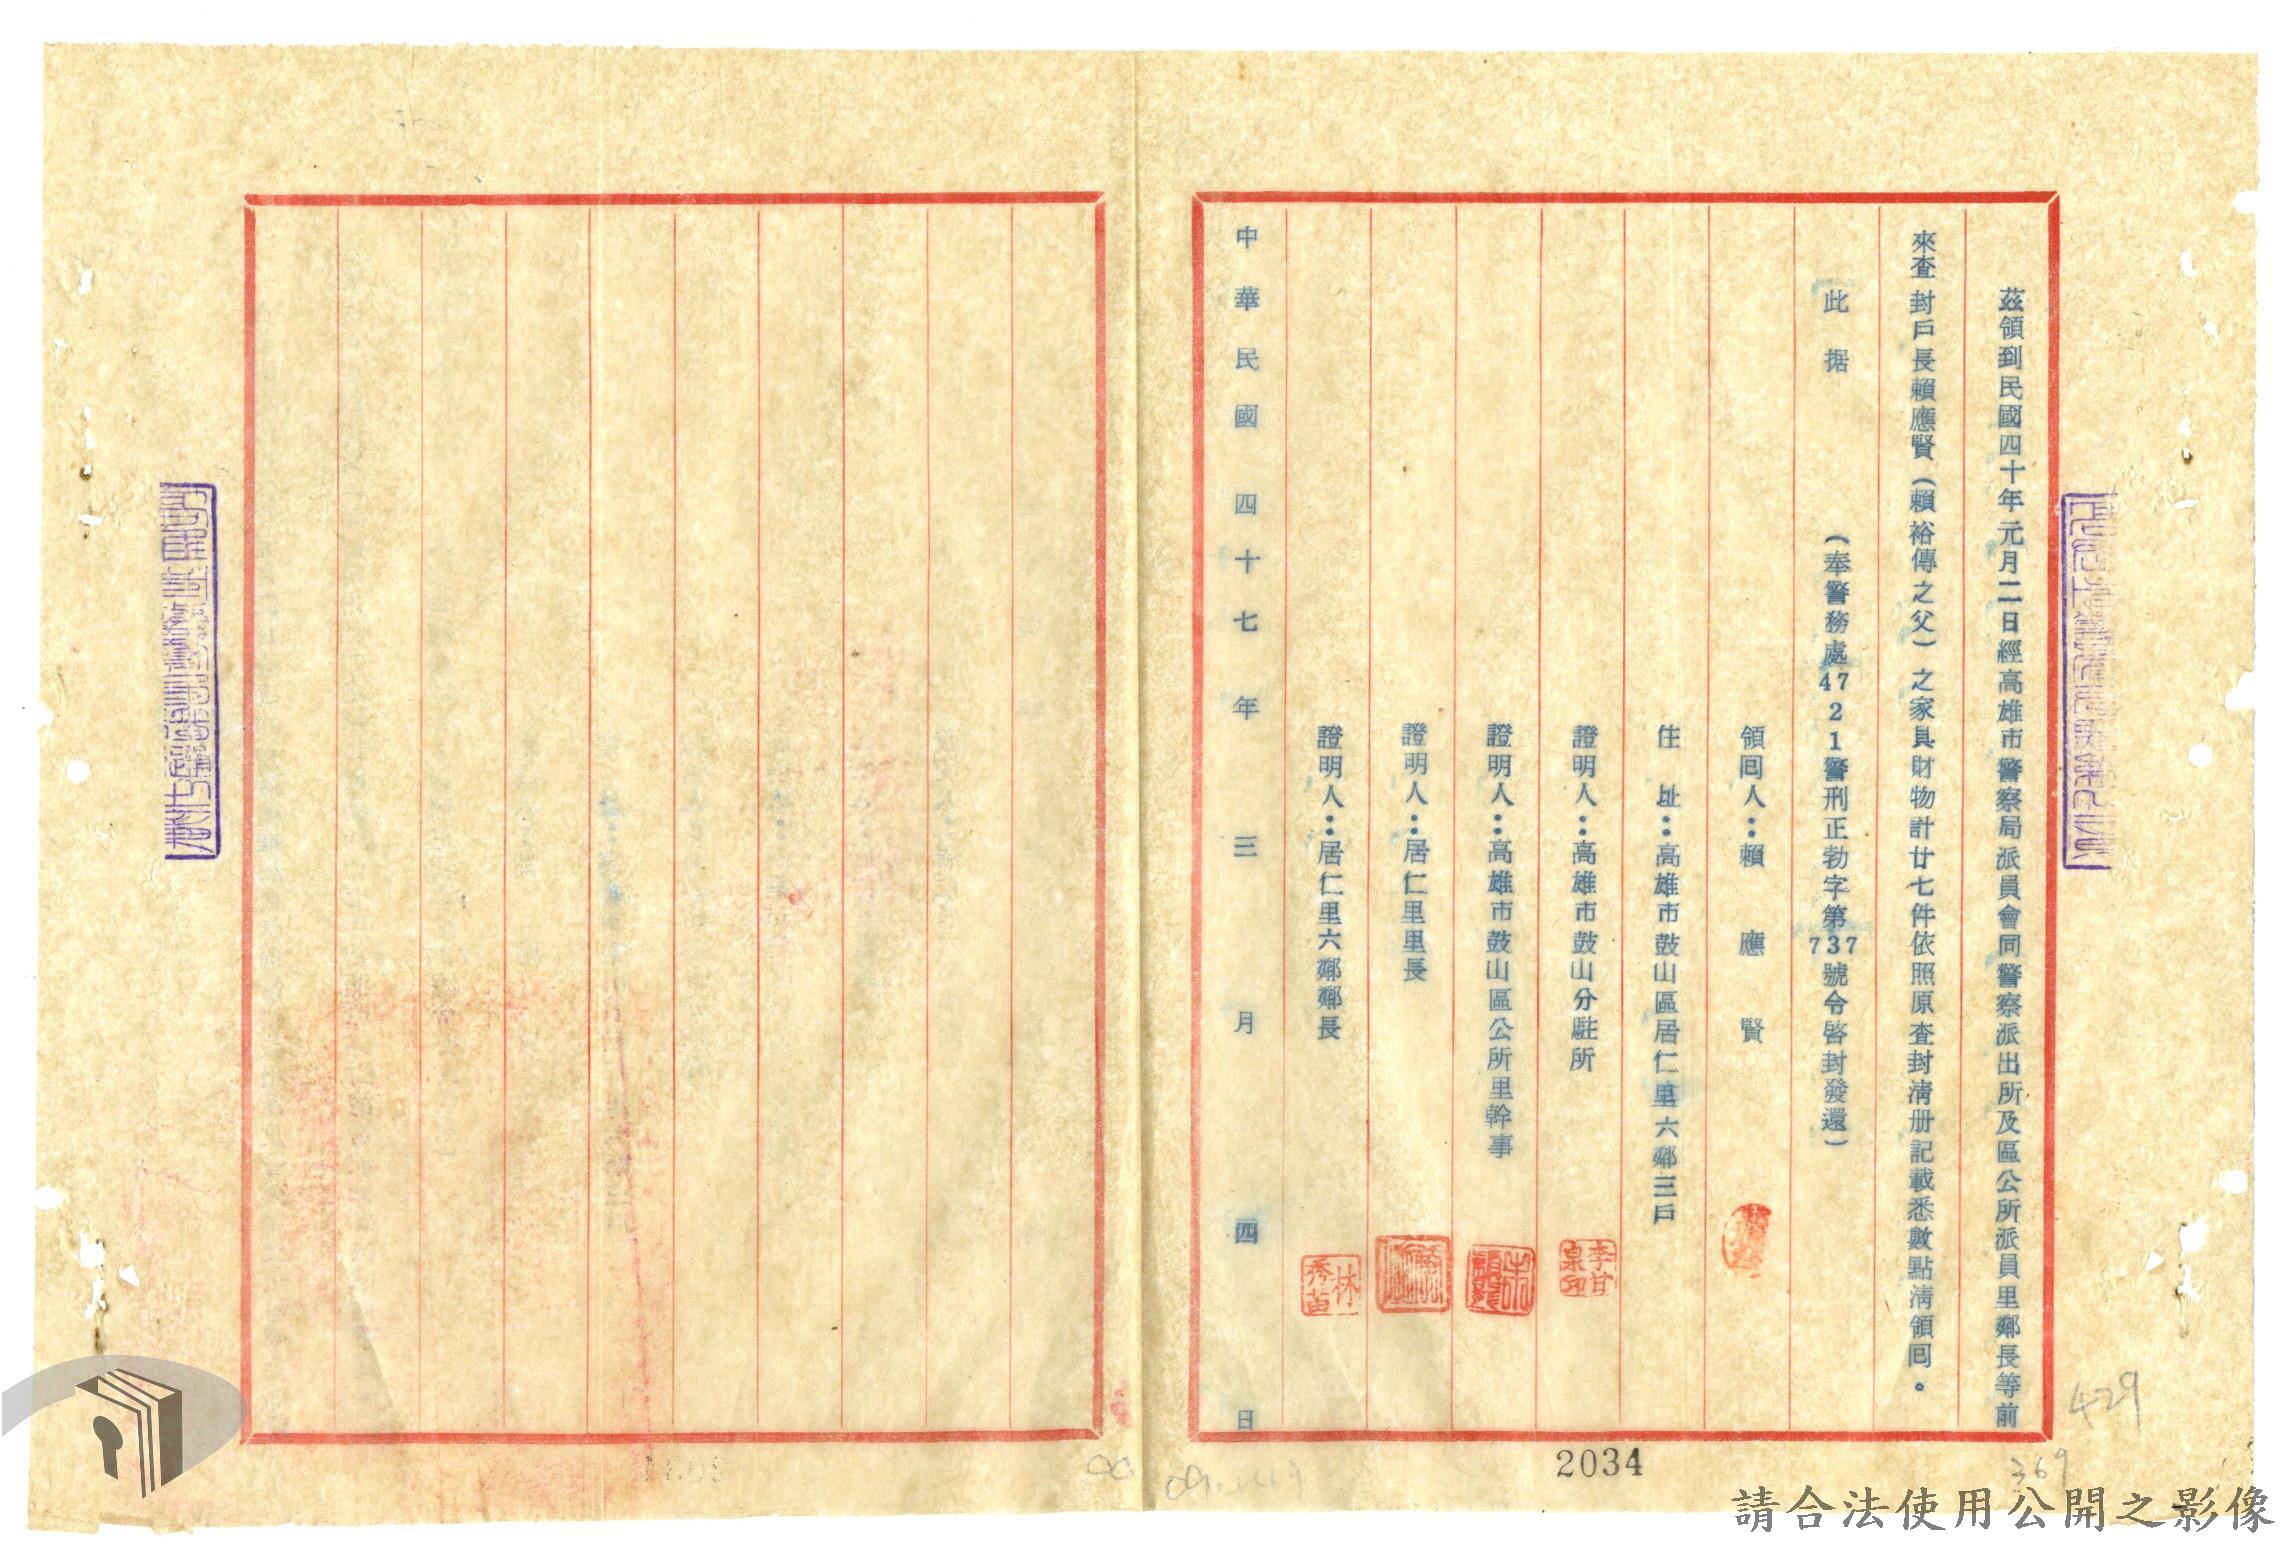 茲領到民國四十年元月二日經高雄市警察局派員會同警察派出所及區公所派員里鄰長等前
來查封戶長賴應賢(賴裕傳之父)之家具財物計廿七件依照原查封清册記載悉數點清領囘。
此据 (奉警務處47 2 1警刑正勃字第737號令啓封發還)
領囘人：賴應賢
住址：高雄市鼓山區居仁里六鄰三戶
證明人：高雄市鼓山分駐所
李甘泉印
證明人：高雄市鼓山區公所里幹事
證明人：居仁里里長
證明人：居仁里六鄰鄰長
林秀苗
中華民國四十七年三月四日
2034
429
369
請合法使用公開之影像